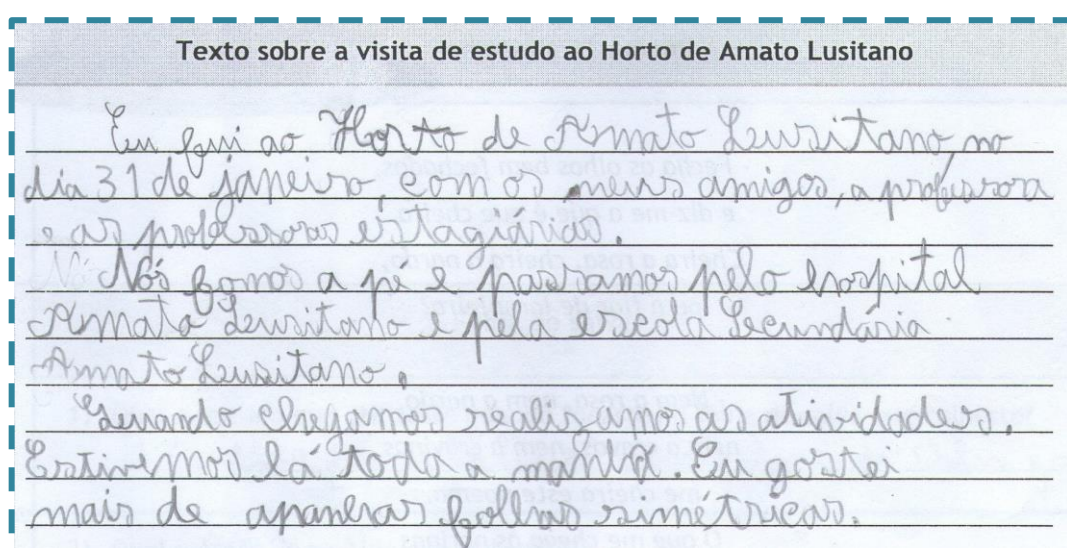 Texto sobre a visita de estudo ao Horto de Amato Lusitano
Eu fui ao Horto de Amato Lusitano, no
dia 31 de janeiro, com os meus amigos, a professora
e as professoras estagiárias.
Nós fomos a pé e passamos pelo hospital
Amato Lusitano e pela escola Secundária
Amato Lusitano.
Quando chegamos realizamos as atividades.
Estivemos lá toda a manhã. Eu gostei
mais de apanhar folhas simétricas.